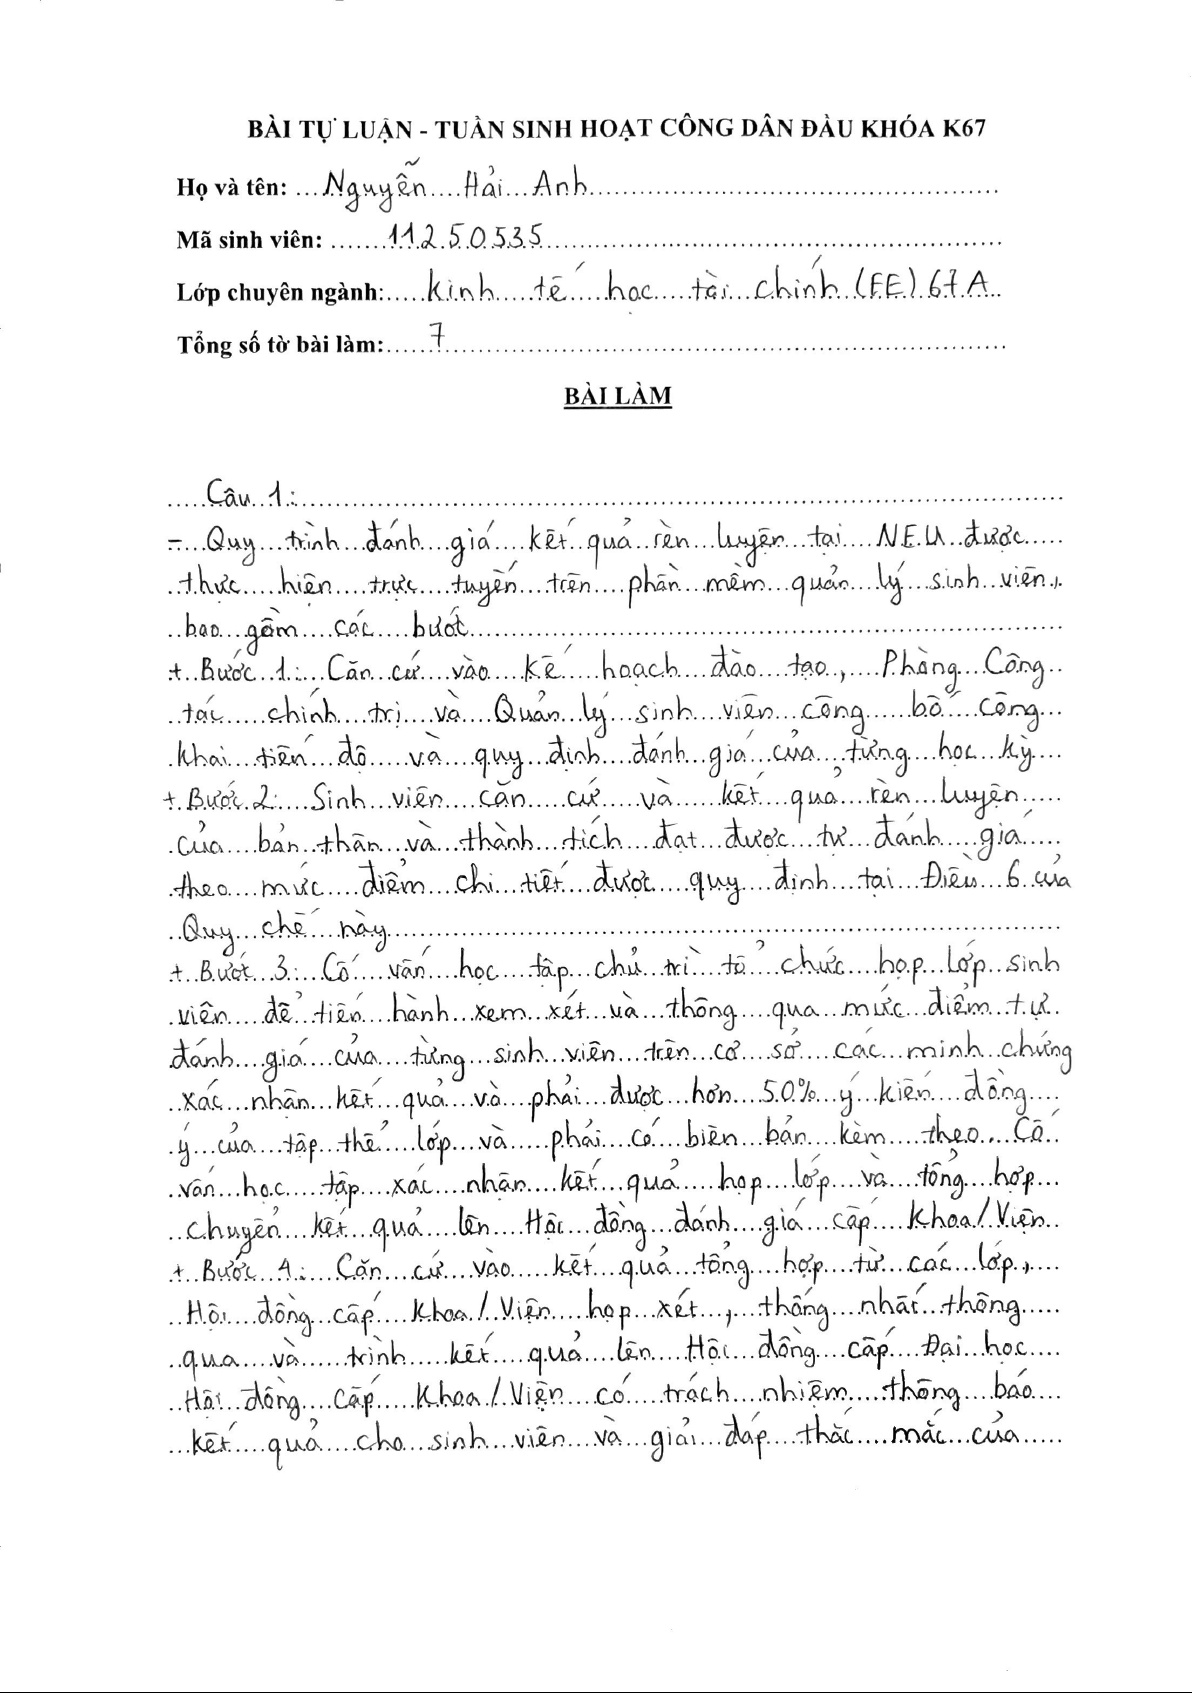 BÀI TỰ LUẬN - TUẦN SINH HOẠT CÔNG DÂN ĐẦU KHÓA K67
Họ và tên: Nguyễn Hải Anh
Mã sinh viên: 11250535
Lớp chuyên ngành: kinh tế học tài chính (FE) 67A
Tổng số tờ bài làm: 7
BÀI LÀM
Câu 1:
- Quy trình đánh giá kết quả rèn luyện tại NEU được
thực hiện trực tuyến trên phần mềm quản lý sinh viên,
bao gồm các bướt
+ Bước 1: Căn cứ vào kế hoạch đào tạo, Phòng Công
tác chính trị và Quản lý sinh viên công bố công
khai tiến độ và quy định đánh giá của từng học kỳ
+ Bước 2: Sinh viên căn cứ và kết quả rèn luyện
của bản thân và thành tích đạt được tự đánh giá
theo mức điểm chi tiết được quy định tại Điều 6 của
Quy chế này
+ Bướt 3: Cố vấn học tập chủ trì tổ chức họp lớp sinh
viên để tiến hành xem xét và thông qua mức điểm tự
đánh giá của từng sinh viên trên cơ sở các minh chứng
xác nhận kết quả và phải được hơn 50% ý kiến đồng
ý của tập thể lớp và phải có biên bản kèm theo. Cố
vấn học tập xác nhận kết quả họp lớp và tổng hợp
chuyển kết quả lên Hội đồng đánh giá cấp Khoa/Viện
+ Bước 4: Căn cứ vào kết quả tổng hợp từ các lớp,
Hội đồng cấp Khoa/Viện họp xét, thống nhất thông
qua và trình kết quả lên Hội đồng cấp Đại học
Hội đồng cấp Khoa/Viện có trách nhiệm thông báo
kết quả cho sinh viên và giải đáp thắc mắc của